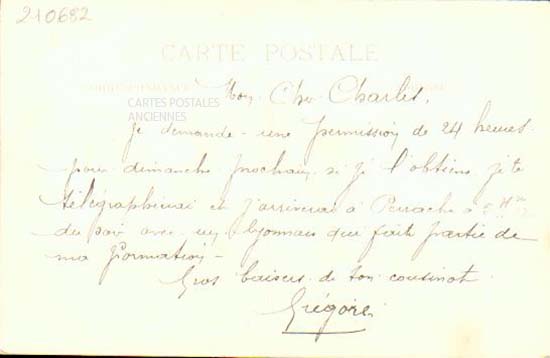 210682
CARTE POSTALE
CARTES POSTALES
ANCIENNES
Mon Cher Charles,
Je demande une permission de 24 heures
pour dimanche prochain, si je l'obtiens, je te
télégraphierai et j'arriverai à Perrache à
du soir avec un lyonnais qui fait partie de
ma formation -
Gros baisers de ton cousinot
Grégoire